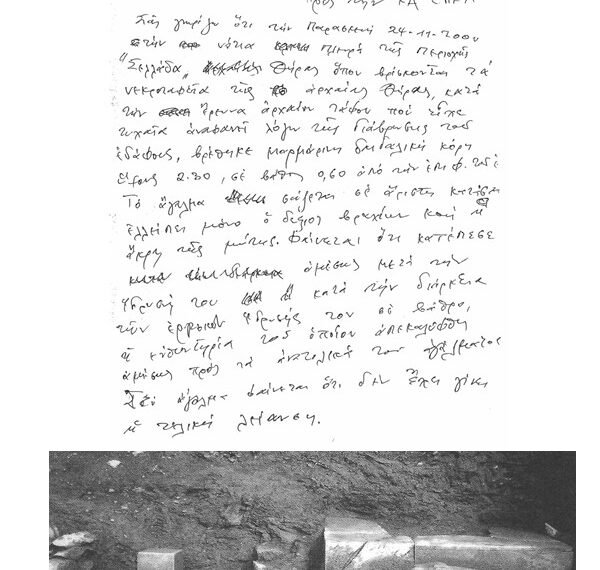 πρὸς τὴν ΚΑ
Σᾶς γνωρίζω ὅτι τὴν Παρασκευή 24-11-2000
στὴν νότια πλευρά τῆς περιοχῆς
"Σελλάδα" Θήρας ὅπου βρίσκονται τὰ
νεκροταφεῖα τῆς ἀρχαίας Θήρας, κατά
τὴν ἔρευνα ἀρχαίου τάφου πού εἶχε
τυχαῖα ἀναφανῆ λόγω τῆς διάβρωσης τοῦ
ἐδάφους, βρέθηκε μαρμάρινη δαιδαλική κόρη
ὕψους 2.30, σὲ βάθος 0,60 ἀπό τὴν ἐπιφ. τοῦ ἐ
Τὸ ἄγαλμα σώζεται σὲ ἄριστη κατάσ
ἐλλείπει μόνο ὁ δεξιός βραχίων καὶ ἡ
ἄκρη τῆς μύτης. Φαίνεται ὅτι κατέπεσε
ἀμέσως μετά τὴν
ἵδρυσή του ἤ κατά τὴν διάρκεια
τῶν ἐργασιῶν ἵδρυσής του σὲ βάθρο,
ἡ εὐθυντηρία τοῦ ὁποίου ἀπεκαλύφθη
ἀμέσως πρὸς τὰ ἀνατολικά τοῦ ἀγάλματος
Στὸ ἄγαλμα φαίνεται ὅτι δὲν ἔχει γίνει
ἡ τελική λείανση.